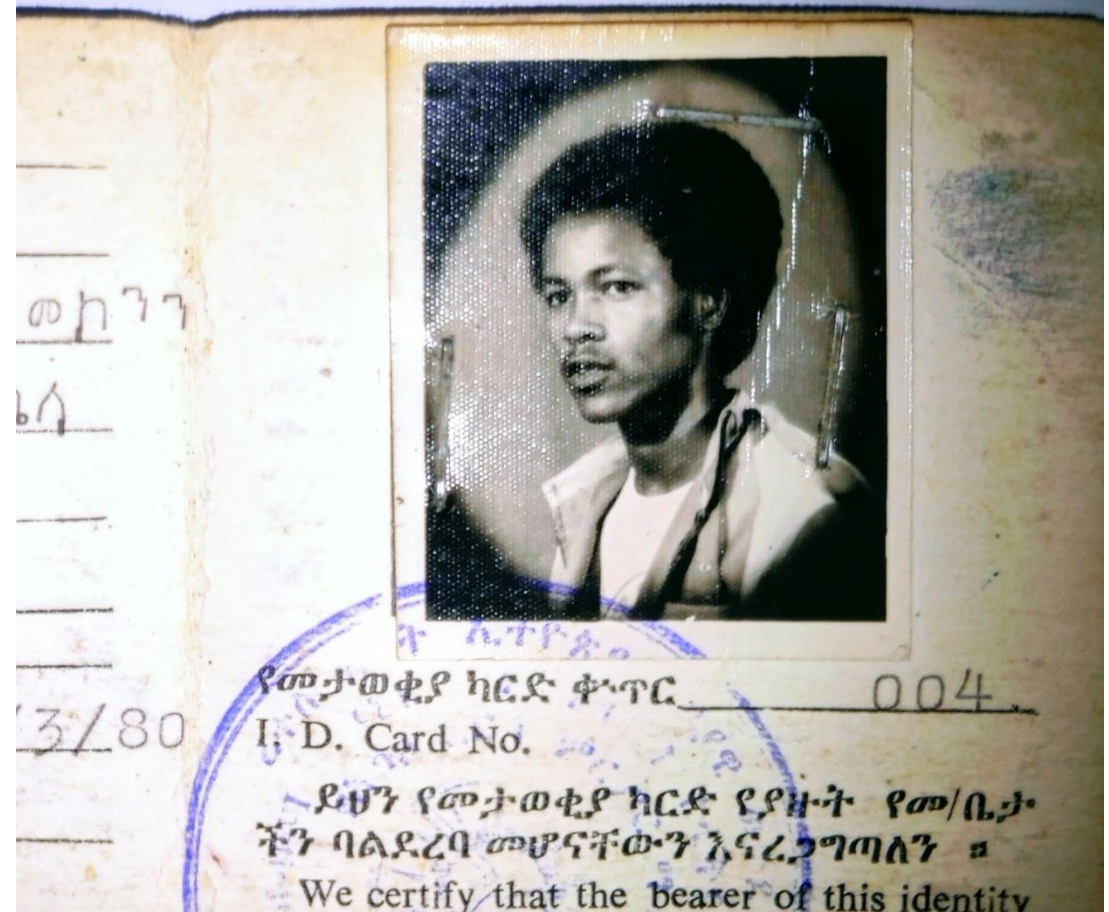 መኮንን
/3/80
ት ኢትዮጵ
የመታወቂያ ካርድ ቍጥር 004
I. D. Card No.
ይህን የመታወቂያ ካርድ የያዙት የመ/ቤታ
ችን ባልደረባ መሆናቸውን እናረጋግጣለን ።
We certify that the bearer of this identity